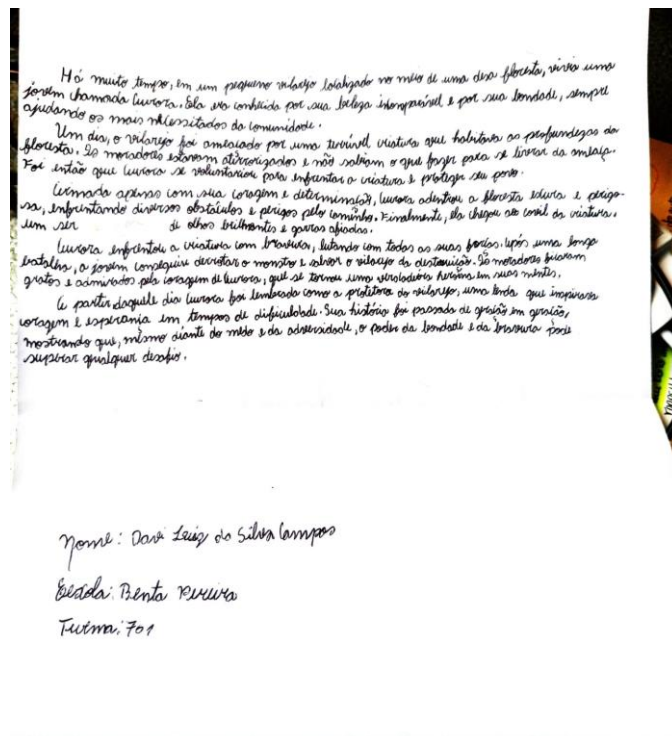 Há muito tempo, em um pequeno vilarejo localizado no meio de uma desa floresta, vivia uma
jovem chamada Aurora. Ela era conhecida por sua beleza incomparável e por sua bondade, sempre
ajudando os mais necessitados da comunidade.
Um dia, o vilarejo foi ameaçado por uma terrível criatura que habitava as profundezas da
floresta. Os moradores estavam aterrorizados e não sabiam o que fazer para se livrar da ameaça.
Foi então que Aurora se voluntariou para enfrentar a criatura e proteger seu povo.
Armada apenas com sua coragem e determinação, Aurora adentrou a floresta escura e perigo-
sa, enfrentando diversos obstáculos e perigos pelo caminho. Finalmente, ela chegou ao covil da criatura.
um ser de olhos brilhantes e garras afiadas.
Aurora enfrentou a criatura com bravura, lutando com todas as suas forças. Após uma longa
batalha, a jovem conseguiu derrotar o monstro e salvar o vilarejo da destruição. Os moradores ficaram
gratos e admirados pela coragem de Aurora, que se tornou uma verdadeira heroína em suas mentes.
A partir daquele dia Aurora foi lembrada como a protetora do vilarejo, uma lenda que inspirava
coragem e esperança em tempos de dificuldade. Sua história foi passada de geração em geração,
mostrando que, mesmo diante do medo e da adversidade, o poder da bondade e da bravura pode
superar qualquer desafio.
Nome: Davi Luiz da Silva Campos
Escola: Benta Pereira
Turma: 701